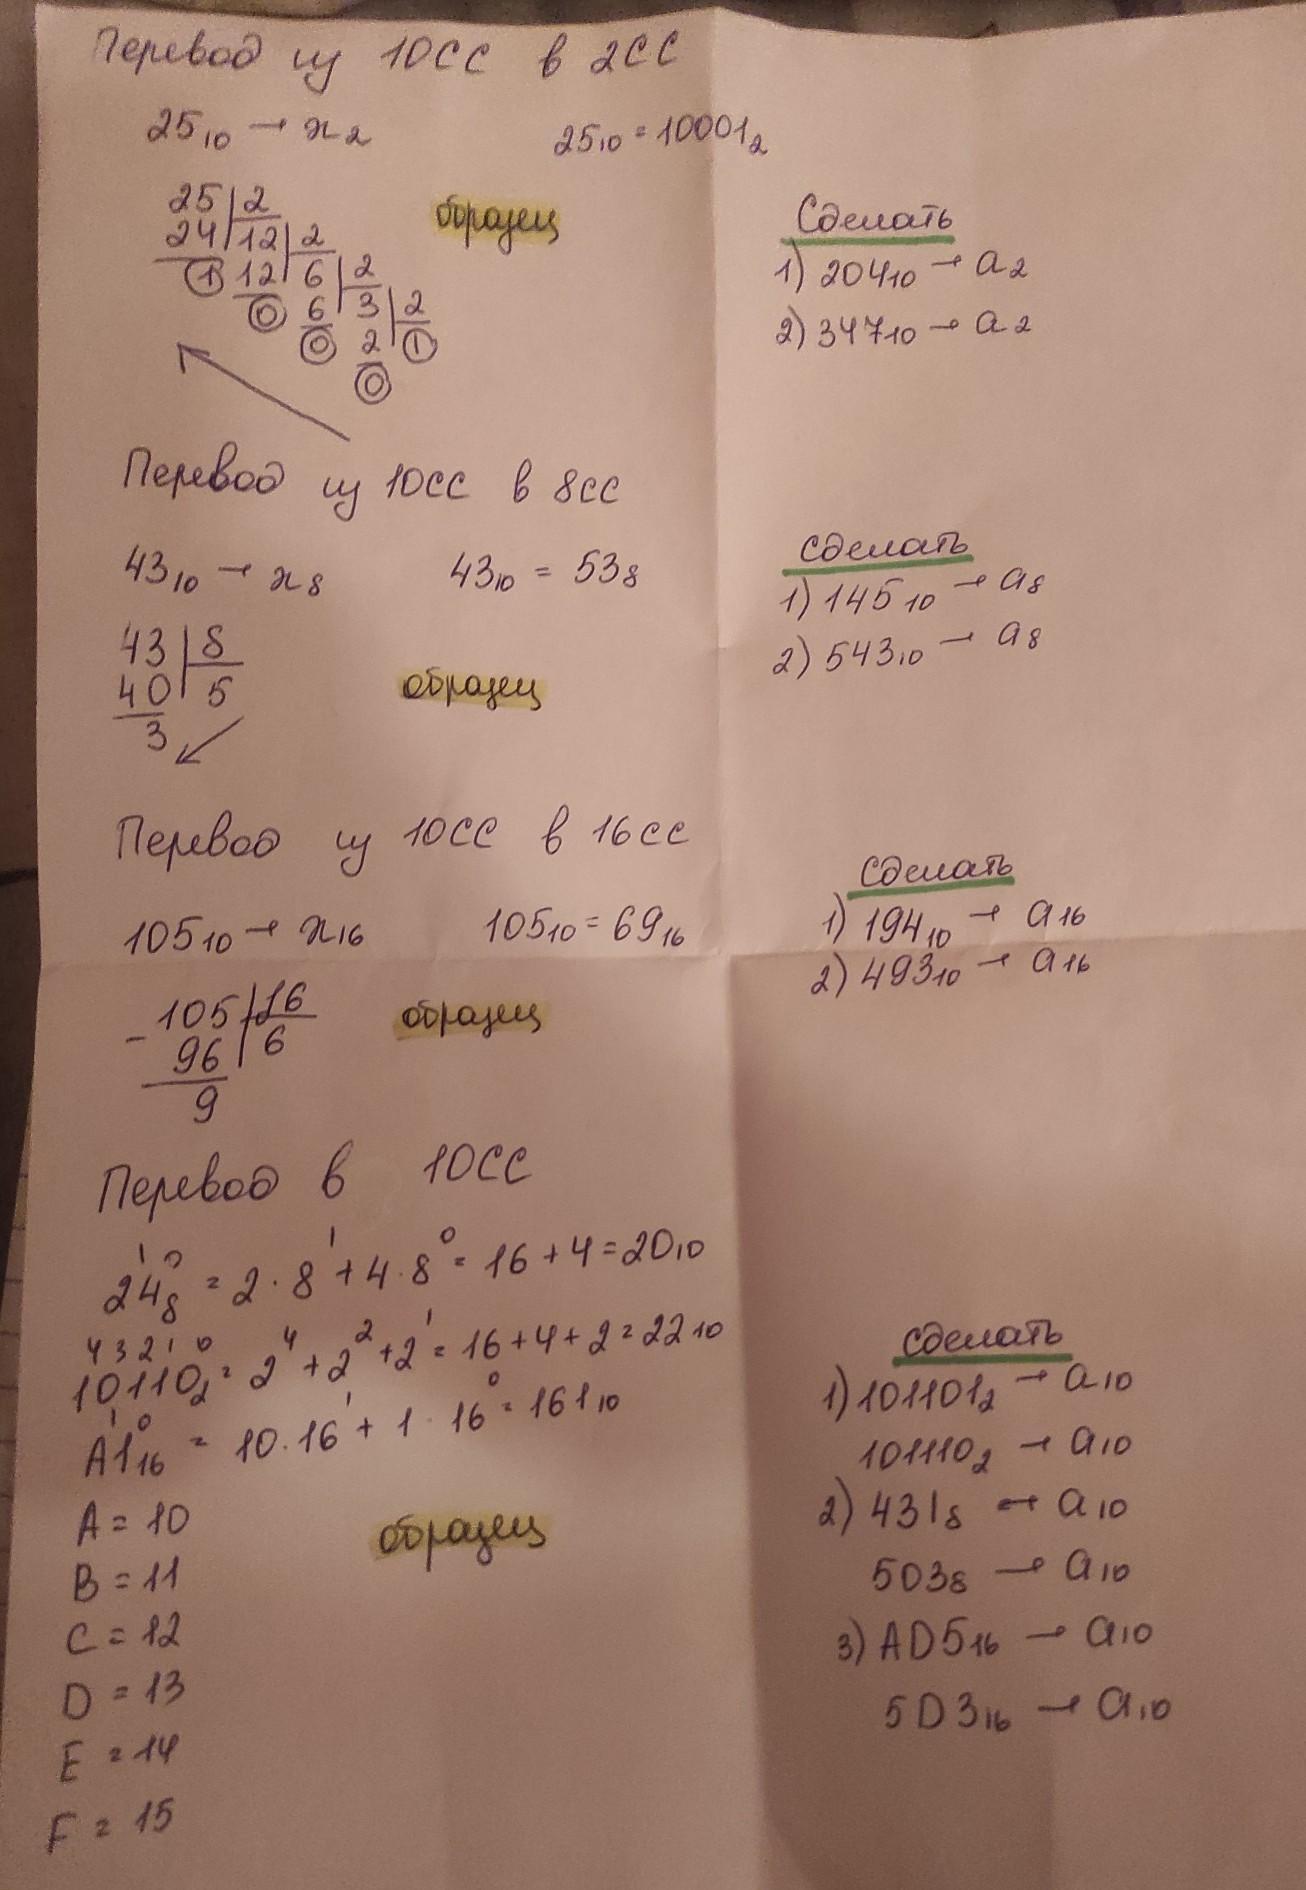 Перевод из 10СС в 2СС
25₁₀ → x₂ 25₁₀ = 10001₂
25 2
24 12 2
1 12 6 2
0 6 3 2
0 2 1
0
образец
Сделать
1) 204₁₀ → a₂
2) 347₁₀ → a₂
Перевод из 10СС в 8СС
43₁₀ → x₈ 43₁₀ = 53₈
43 8
40 5
3
образец
Сделать
1) 145₁₀ → a₈
2) 543₁₀ → a₈
Перевод из 10СС в 16СС
105₁₀ → x₁₆ 105₁₀ = 69₁₆
- 105 16
96 6
9
образец
Сделать
1) 194₁₀ → a₁₆
2) 493₁₀ → a₁₆
Перевод в 10СС
1 0
24₈ = 2 · 8¹ + 4 · 8⁰ = 16 + 4 = 20₁₀
4 3 2 1 0
10110₂ = 2⁴ + 2² + 2¹ = 16 + 4 + 2 = 22₁₀
1 0
A1₁₆ = 10 · 16¹ + 1 · 16⁰ = 161₁₀
A = 10
B = 11
C = 12
D = 13
E = 14
F = 15
образец
Сделать
1) 101101₂ → a₁₀
101110₂ → a₁₀
2) 431₈ → a₁₀
503₈ → a₁₀
3) AD5₁₆ → a₁₀
5D3₁₆ → a₁₀